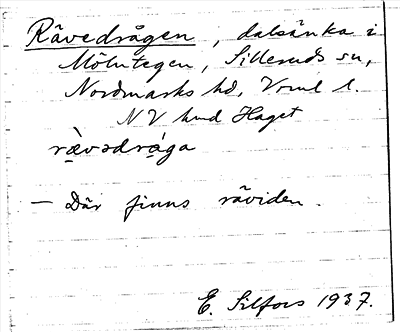 Rävedrågen, dalsänka i
Mölntegen, Silleruds sn,
Nordmarks hd, Vrml l.
NV hmd Haget
rä̀vədrå̀ga
— Där finns räviden.
E. Silfors 1937.